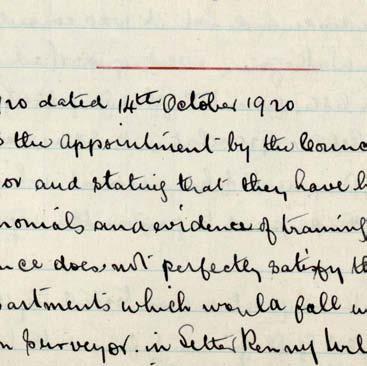 920 dated 14th October 1920
the appointment by the Counc
or and stating that they have b
monials and evidence of training
nce does not perfectly satisfy th
partments which would fall u
n Surveyor. in Letter Kenny Wil